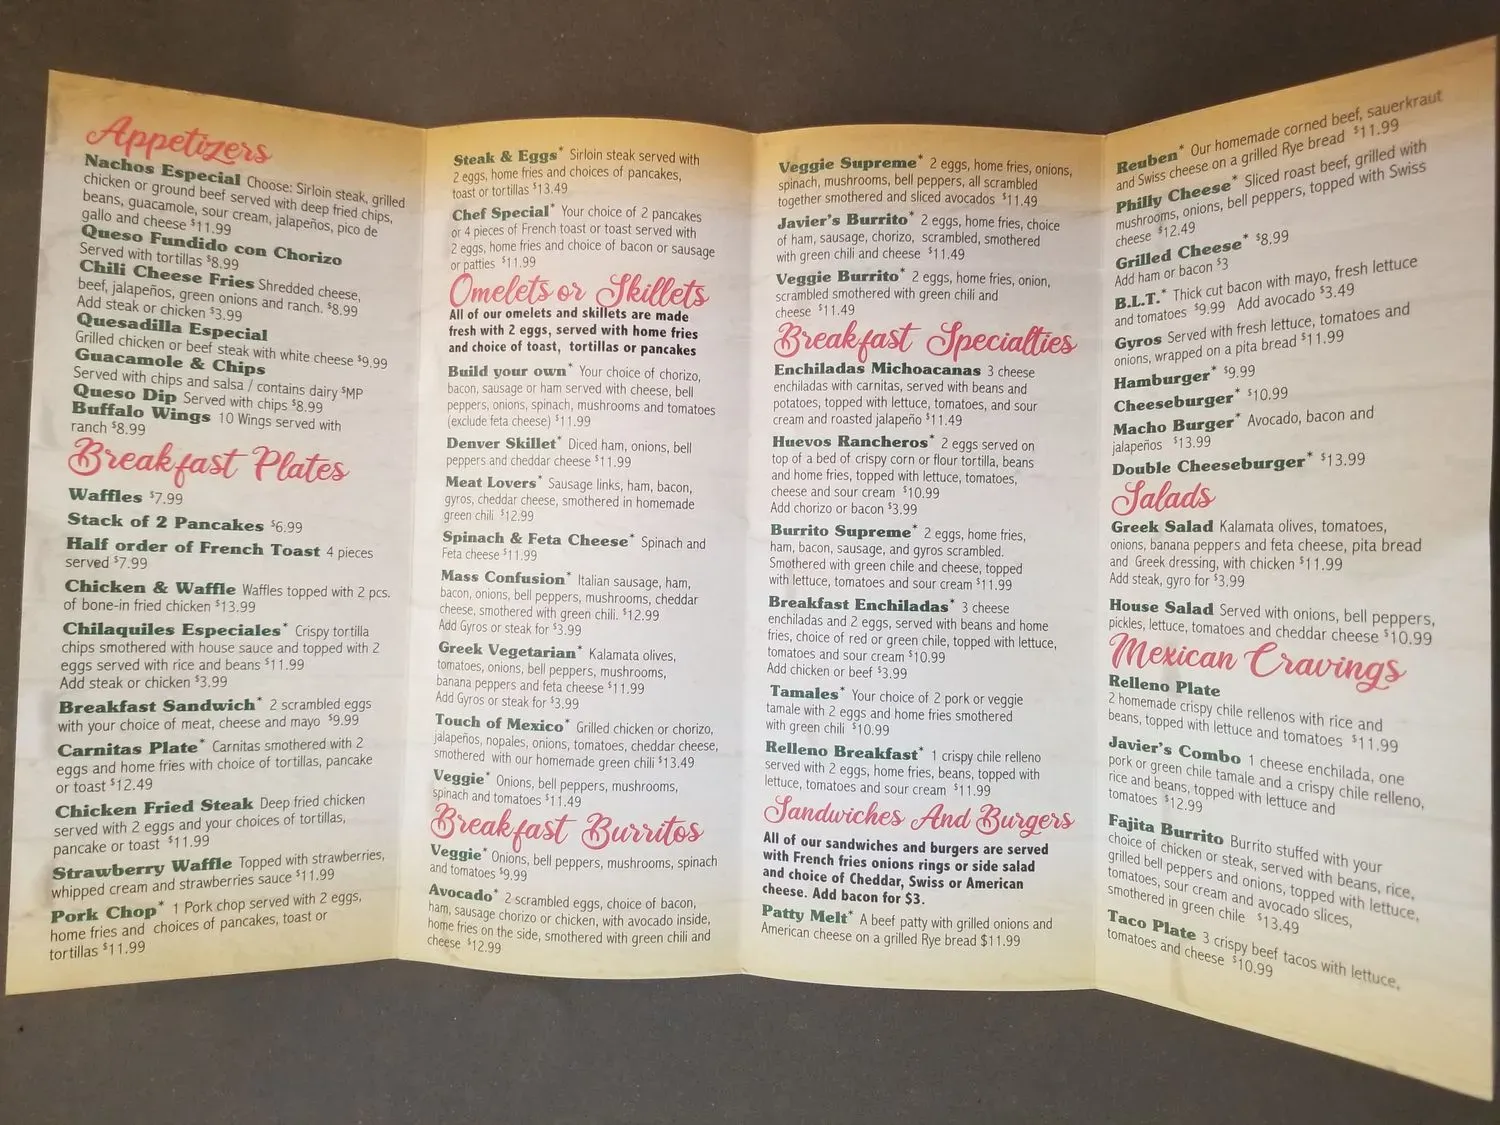 Appetizers
Nachos Especial Choose: Sirloin steak, grilled
chicken or ground beef served with deep fried chips,
beans, guacamole, sour cream, jalapeños, pico de
gallo and cheese $11.99
Queso Fundido con Chorizo
Served with tortillas $8.99
Chili Cheese Fries Shredded cheese,
beef, jalapeños, green onions and ranch. $8.99
Add steak or chicken $3.99
Quesadilla Especial
Grilled chicken or beef steak with white cheese $9.99
Guacamole & Chips
Served with chips and salsa / contains dairy $MP
Queso Dip Served with chips $8.99
Buffalo Wings 10 Wings served with
ranch $8.99
Breakfast Plates
Waffles $7.99
Stack of 2 Pancakes $6.99
Half order of French Toast 4 pieces
served $7.99
Chicken & Waffle Waffles topped with 2 pcs.
of bone-in fried chicken $13.99
Chilaquiles Especiales* Crispy tortilla
chips smothered with house sauce and topped with 2
eggs served with rice and beans $11.99
Add steak or chicken $3.99
Breakfast Sandwich* 2 scrambled eggs
with your choice of meat, cheese and mayo $9.99
Carnitas Plate* Carnitas smothered with 2
eggs and home fries with choice of tortillas, pancake
or toast $12.49
Chicken Fried Steak Deep fried chicken
served with 2 eggs and your choices of tortillas,
pancake or toast $11.99
Strawberry Waffle Topped with strawberries,
whipped cream and strawberries sauce $11.99
Pork Chop* 1 Pork chop served with 2 eggs,
home fries and choices of pancakes, toast or
tortillas $11.99
Steak & Eggs* Sirloin steak served with
2 eggs, home fries and choices of pancakes,
toast or tortillas $13.49
Chef Special* Your choice of 2 pancakes
or 4 pieces of French toast or toast served with
2 eggs, home fries and choice of bacon or sausage
or patties $11.99
Omelets or Skillets
All of our omelets and skillets are made
fresh with 2 eggs, served with home fries
and choice of toast, tortillas or pancakes
Build your own* Your choice of chorizo,
bacon, sausage or ham served with cheese, bell
peppers, onions, spinach, mushrooms and tomatoes
(exclude feta cheese) $11.99
Denver Skillet* Diced ham, onions, bell
peppers and cheddar cheese $11.99
Meat Lovers* Sausage links, ham, bacon,
gyros, cheddar cheese, smothered in homemade
green chili $12.99
Spinach & Feta Cheese* Spinach and
Feta cheese $11.99
Mass Confusion* Italian sausage, ham,
bacon, onions, bell peppers, mushrooms, cheddar
cheese, smothered with green chili. $12.99
Add Gyros or steak for $3.99
Greek Vegetarian* Kalamata olives,
tomatoes, onions, bell peppers, mushrooms,
banana peppers and feta cheese $11.99
Add Gyros or steak for $3.99
Touch of Mexico* Grilled chicken or chorizo,
jalapeños, nopales, onions, tomatoes, cheddar cheese,
smothered with our homemade green chili $13.49
Veggie* Onions, bell peppers, mushrooms,
spinach and tomatoes $11.49
Breakfast Burritos
Veggie* Onions, bell peppers, mushrooms, spinach
and tomatoes $9.99
Avocado* 2 scrambled eggs, choice of bacon,
ham, sausage chorizo or chicken, with avocado inside,
home fries on the side, smothered with green chili and
cheese $12.99
Veggie Supreme* 2 eggs, home fries, onions,
spinach, mushrooms, bell peppers, all scrambled
together smothered and sliced avocados $11.49
Javier's Burrito* 2 eggs, home fries, choice
of ham, sausage, chorizo, scrambled, smothered
with green chili and cheese $11.49
Veggie Burrito* 2 eggs, home fries, onion,
scrambled smothered with green chili and
cheese $11.49
Breakfast Specialties
Enchiladas Michoacanas 3 cheese
enchiladas with carnitas, served with beans and
potatoes, topped with lettuce, tomatoes, and sour
cream and roasted jalapeño $11.49
Huevos Rancheros* 2 eggs served on
top of a bed of crispy corn or flour tortilla, beans
and home fries, topped with lettuce, tomatoes,
cheese and sour cream $10.99
Add chorizo or bacon $3.99
Burrito Supreme* 2 eggs, home fries,
ham, bacon, sausage, and gyros scrambled.
Smothered with green chile and cheese, topped
with lettuce, tomatoes and sour cream $11.99
Breakfast Enchiladas* 3 cheese
enchiladas and 2 eggs, served with beans and home
fries, choice of red or green chile, topped with lettuce,
tomatoes and sour cream $10.99
Add chicken or beef $3.99
Tamales* Your choice of 2 pork or veggie
tamale with 2 eggs and home fries smothered
with green chili $10.99
Relleno Breakfast* 1 crispy chile relleno
served with 2 eggs, home fries, beans, topped with
lettuce, tomatoes and sour cream $11.99
Sandwiches And Burgers
All of our sandwiches and burgers are served
with French fries onions rings or side salad
and choice of Cheddar, Swiss or American
cheese. Add bacon for $3.
Patty Melt* A beef patty with grilled onions and
American cheese on a grilled Rye bread $11.99
Reuben* Our homemade corned beef, sauerkraut
and Swiss cheese on a grilled Rye bread $11.99
Philly Cheese* Sliced roast beef, grilled with
mushrooms, onions, bell peppers, topped with Swiss
cheese $12.49
Grilled Cheese* $8.99
Add ham or bacon $3
B.L.T.* Thick cut bacon with mayo, fresh lettuce
and tomatoes $9.99 Add avocado $3.49
Gyros Served with fresh lettuce, tomatoes and
onions, wrapped on a pita bread $11.99
Hamburger* $9.99
Cheeseburger* $10.99
Macho Burger* Avocado, bacon and
jalapeños $13.99
Double Cheeseburger* $13.99
Salads
Greek Salad Kalamata olives, tomatoes,
onions, banana peppers and feta cheese, pita bread
and Greek dressing, with chicken $11.99
Add steak, gyro for $3.99
House Salad Served with onions, bell peppers,
pickles, lettuce, tomatoes and cheddar cheese $10.99
Mexican Cravings
Relleno Plate
2 homemade crispy chile rellenos with rice and
beans, topped with lettuce and tomatoes $11.99
Javier's Combo 1 cheese enchilada, one
pork or green chile tamale and a crispy chile relleno,
rice and beans, topped with lettuce and
tomatoes $12.99
Fajita Burrito Burrito stuffed with your
choice of chicken or steak, served with beans, rice,
grilled bell peppers and onions, topped with lettuce,
tomatoes, sour cream and avocado slices,
smothered in green chile $13.49
Taco Plate 3 crispy beef tacos with lettuce,
tomatoes and cheese $10.99